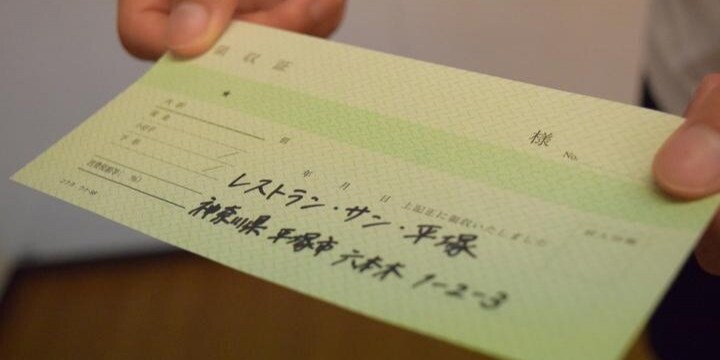 領収証
様
No.
★
内訳
現金
小切手
手形
消費税額等( %)
年 月 日 上記正に領収いたしました
収入印紙
レストラン・サン・平塚
神奈川県 平塚市 六本木 1-2-3